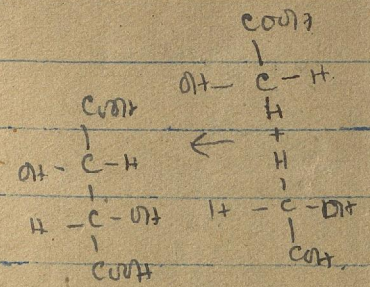 COOH
OH- C - H
H
+
H
H - C - OH
COOH
←
COOH
OH - C - H
H - C - OH
COOH